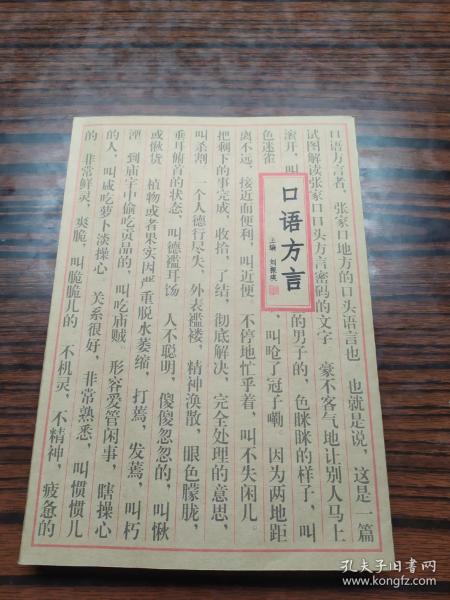 口语方言者，张家口地方的口头语言也 也就是说，这是一篇
试图解读张家口口头方言密码的文字 豪不客气地让别人马上
滚开，叫
的男子的，色眯眯的样子，叫
色迷雀
，叫呛了冠子嘞。因为两地距
离不远，接近而便利，叫近便 不停地忙乎着，叫不失闲儿
把剩下的事完成，收拾，了结，彻底解决，完全处理的意思，
叫杀割 一个人德行尽失，外表褴褛，精神涣散，眼色朦胧，
垂耳俯首的状态，叫德褴耳饧 人不聪明，傻傻忽忽的，叫愀
或愀货 植物或者果实因严重脱水萎缩，打蔫，发蔫，叫朽
湮 到庙宇中偷吃贡品的，叫吃庙贼。形容爱管闲事，瞎操心
的人，叫咸吃萝卜淡操心 关系很好，非常熟悉，叫惯惯儿
的 非常鲜灵，爽脆，叫脆脆儿的 不机灵，不精神，疲惫的
口语方言
主编 刘振瑛
孔夫子旧书网
www.kongfz.com